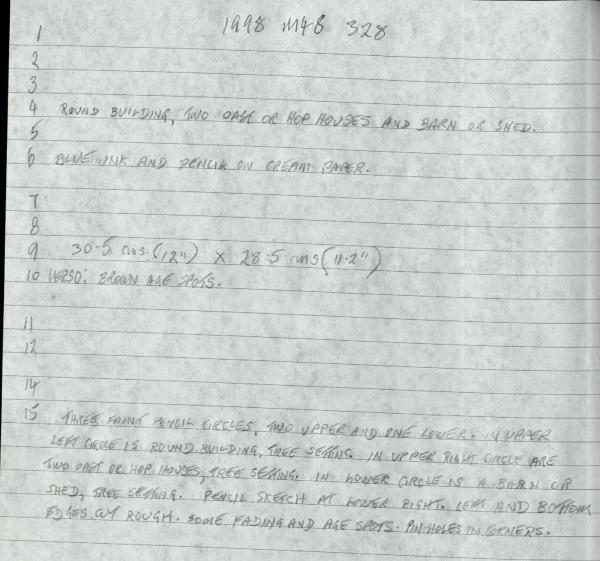 1998 M48 328
1
2
3
4 ROUND BUILDING, TWO OAST OR HOP HOUSES AND BARN OR SHED.
5
6 BLUE INK AND PENCIL ON CREAM PAPER.
7
8
9 30.5 cms. (12") x 28.5 cms (11.2")
10 VERSO: BROWN AGE SPOTS.
11
12
14
15 THREE FAINT PENCIL CIRCLES, TWO UPPER AND ONE LOWER. IN UPPER
LEFT CIRCLE IS ROUND BUILDING, TREE SETTING. IN UPPER RIGHT CIRCLE ARE
TWO OAST OR HOP HOUSES, TREE SETTING. IN LOWER CIRCLE IS A BARN OR
SHED, TREE SETTING. PENCIL SKETCH AT LOWER RIGHT. LEFT AND BOTTOM
EDGES CUT ROUGH. SOME FADING AND AGE SPOTS. PIN HOLES IN CORNERS.